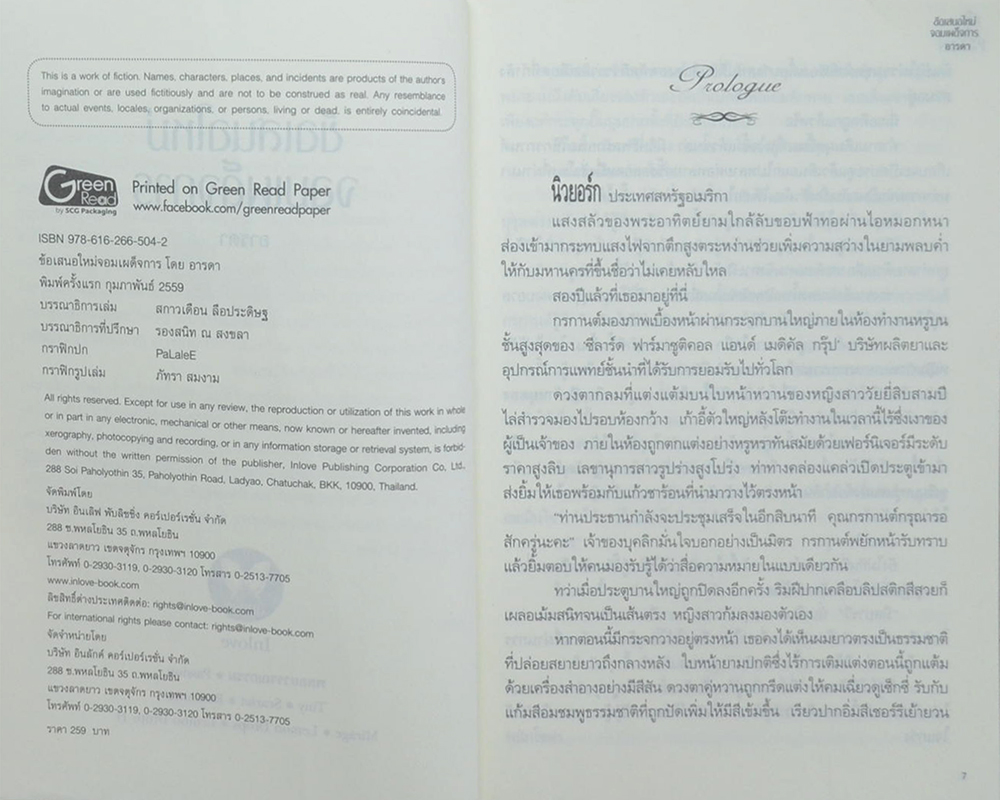 This is a work of fiction. Names, characters, places, and incidents are products of the authors
imagination or are used fictitiously and are not to be construed as real. Any resemblance
to actual events, locales, organizations, or persons, living or dead, is entirely coincidental.
Green
Read
by SCG Packaging
Printed on Green Read Paper
www.facebook.com/greenreadpaper
ISBN 978-616-266-504-2
ข้อเสนอใหม่จอมเผด็จการ โดย อารดา
พิมพ์ครั้งแรก กุมภาพันธ์ 2559
บรรณาธิการเล่ม สกาวเดือน ลือประดิษฐ
บรรณาธิการที่ปรึกษา รองสนิท ณ สงขลา
กราฟิกปก PaLaleE
กราฟิกรูปเล่ม ภัทรา สมงาม
All rights reserved. Except for use in any review, the reproduction or utilization of this work in whole
or in part in any electronic, mechanical or other means, now known or hereafter invented, including
xerography, photocopying and recording, or in any information storage or retrieval system, is forbid-
den without the written permission of the publisher, Inlove Publishing Corporation Co, Ltd.
288 Soi Paholyothin 35, Paholyothin Road, Ladyao, Chatuchak, BKK, 10900, Thailand.
จัดพิมพ์โดย
บริษัท อินเลิฟ พับลิชชิ่ง คอร์เปอร์เรชั่น จำกัด
288 ซ.พหลโยธิน 35 ถ.พหลโยธิน
แขวงลาดยาว เขตจตุจักร กรุงเทพฯ 10900
โทรศัพท์ 0-2930-3119, 0-2930-3120 โทรสาร 0-2513-7705
www.inlove-book.com
ลิขสิทธิ์ต่างประเทศติดต่อ: rights@inlove-book.com
For international rights please contact: rights@inlove-book.com
จัดจำหน่ายโดย
บริษัท อินลักค์ คอร์เปอร์เรชั่น จำกัด
288 ซ.พหลโยธิน 35 ถ.พหลโยธิน
แขวงลาดยาว เขตจตุจักร กรุงเทพฯ 10900
โทรศัพท์ 0-2930-3119, 0-2930-3120 โทรสาร 0-2513-7705
ราคา 259 บาท
ข้อเสนอใหม่
จอมเผด็จการ
อารดา
Prologue
นิวยอร์ก ประเทศสหรัฐอเมริกา
แสงสลัวของพระอาทิตย์ยามใกล้ลับขอบฟ้าทอผ่านไอหมอกหนา
ส่องเข้ามากระทบแสงไฟจากตึกสูงตระหง่านช่วยเพิ่มความสว่างในยามพลบค่ำ
ให้กับมหานครที่ขึ้นชื่อว่าไม่เคยหลับใหล
สองปีแล้วที่เธอมาอยู่ที่นี่
กรกานต์มองภาพเบื้องหน้าผ่านกระจกบานใหญ่ภายในห้องทำงานหรูบน
ชั้นสูงสุดของ ‘ซีลาร์ด ฟาร์มาซูติคอล แอนด์ เมดิคัล กรุ๊ป’ บริษัทผลิตยาและ
อุปกรณ์การแพทย์ชั้นนำที่ได้รับการยอมรับไปทั่วโลก
ดวงตากลมที่แต่งแต้มบนใบหน้าหวานของหญิงสาววัยยี่สิบสามปี
ไล่สำรวจมองไปรอบห้องกว้าง เก้าอี้ตัวใหญ่หลังโต๊ะทำงานในเวลานี้ไร้ซึ่งเงาของ
ผู้เป็นเจ้าของ ภายในห้องถูกตกแต่งอย่างหรูหราทันสมัยด้วยเฟอร์นิเจอร์มีระดับ
ราคาสูงลิบ เลขานุการสาวรูปร่างสูงโปร่ง ท่าทางคล่องแคล่วเปิดประตูเข้ามา
ส่งยิ้มให้เธอพร้อมกับแก้วชาร้อนที่นำมาวางไว้ตรงหน้า
“ท่านประธานกำลังจะประชุมเสร็จในอีกสิบนาที คุณกรกานต์กรุณารอ
สักครู่นะคะ” เจ้าของบุคลิกมั่นใจบอกอย่างเป็นมิตร กรกานต์พยักหน้ารับทราบ
แล้วยิ้มตอบให้คนมองรับรู้ได้ว่าสื่อความหมายในแบบเดียวกัน
ทว่าเมื่อประตูบานใหญ่ถูกปิดลงอีกครั้ง ริมฝีปากเคลือบลิปสติกสีสวยก็
เผลอเม้มสนิทจนเป็นเส้นตรง หญิงสาวก้มลงมองตัวเอง
หากตอนนี้มีกระจกวางอยู่ตรงหน้า เธอคงได้เห็นผมยาวตรงเป็นธรรมชาติ
ที่ปล่อยสยายยาวถึงกลางหลัง ใบหน้ายามปกติซึ่งไร้การเติมแต่งตอนนี้ถูกแต้ม
ด้วยเครื่องสำอางอย่างมีสีสัน ดวงตาคู่หวานถูกกรีดแต่งให้คมเฉี่ยวดูเซ็กซี่ รับกับ
แก้มสีอมชมพูธรรมชาติที่ถูกปัดเพิ่มให้มีสีเข้มขึ้น เรียวปากอิ่มสีเชอร์รีเย้ายวน
7